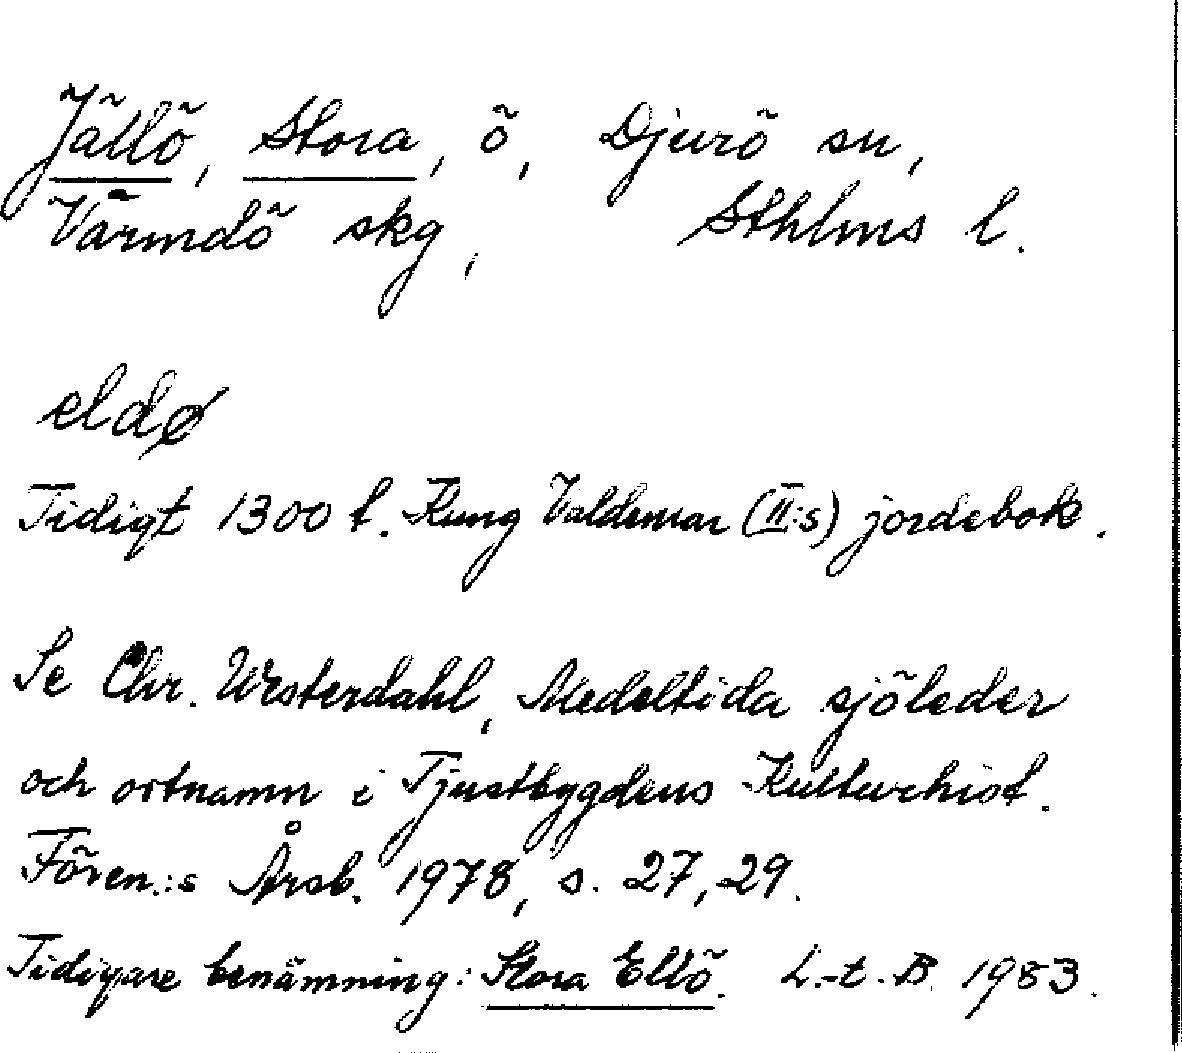 Jällö, Stora, ö, Djurö sn,
Värmdö skg, Sthlms l.
eldø
Tidigt 1300 t. Kung Valdemar (II:s) jordebok.
Se Chr. Westerdahl, Medeltida sjöleder
och ortnamn i Tjustbygdens Kulturhist.
Fören.:s Årsb. 1978, s. 27, 29.
Tidigare benämning: Stora Ellö. L.-t. B. 1983.